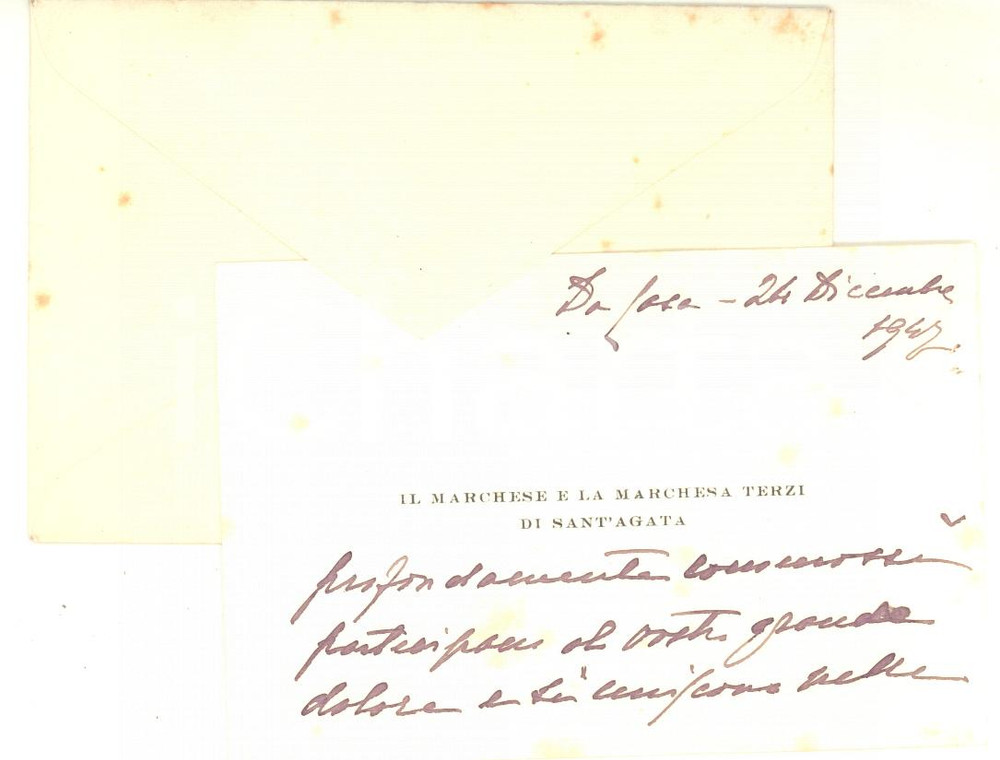 Da Casa - 24 Dicembre
1947.
IL MARCHESE E LA MARCHESA TERZI
DI SANT'AGATA
profondamente commossi
partecipano al vostro grande
dolore e si uniscono nelle